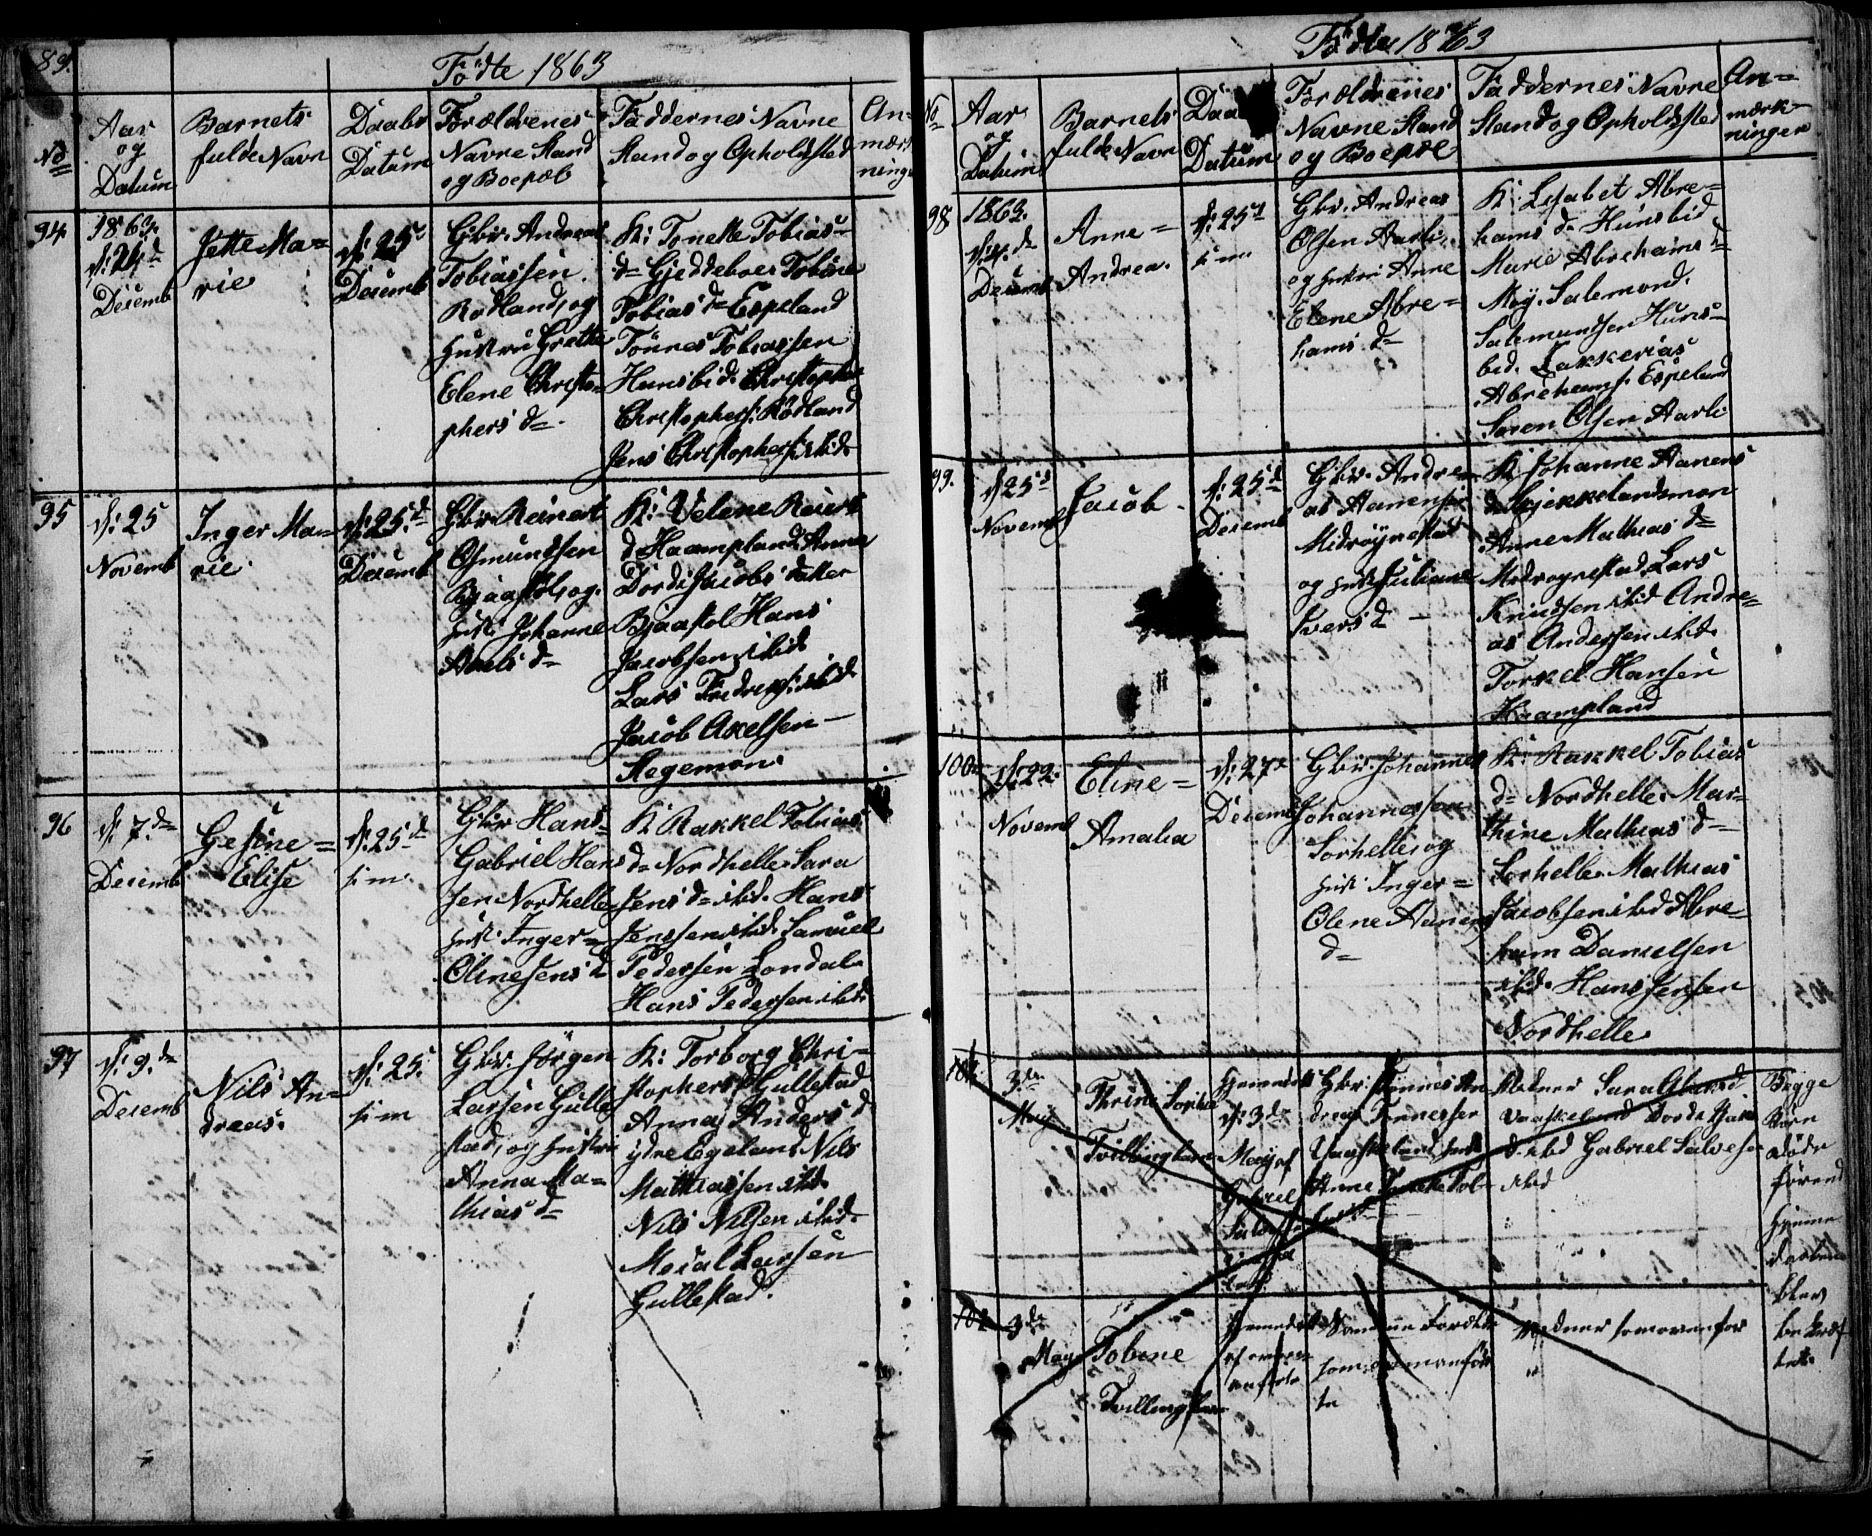 89.
Födte 1863
No
Aar
og
Datum
Barnets
fulde Navn
Daabs
Datum
Forældrenes
Navne Stand
og Boepæl
Faddernes Navne
Stand og Opholdsted
An-
mærk
ninge
94
1863.
d:
Decemb
Jette Ma=
rie
d: 25
Decemb
Gbr. Andreas
Tobiassen
Rodland, og
hustru Grethe
Elene Christo-
phers d=
K: Tonette Tobias-
d= Gjeddeboe Tobine
Tobias d= Espeland
Tönnes Tobiassen
Hunsbid. Christopher
Christophers: Rödland
Jens Christophers: ibid.
95
d: 25
Novemb
Inger Ma=
rie
d: 25 d=
Decemb
Gbr. Reinert
Osmundsen
Bjaastol, og
hust. Johanne
Axels d=
K: Velene Reiers
d. Haampland Anne
Dorde Jacobs datter
Bjaastol Hans
Jacobsen ibid.
Lars Fredrexs: ibid
Jacob Axelsen
Stegemon.
96
d: 7. d=
Decemb
Gesine=
Elise
d: 25 d=
s: m.
Gbr. Hans
Gabriel Han
sen Nordhelle
hust. Inger=
Oline Jens d
K: Rakkel Tobias
d= Nordhelle. Sara
Jens d= ibid. Hans
Jenssen ibid. Samuel
Pedersen Londal.
Hans Pedersen ibid.
97
d: 9. d=
Decemb
Nils An=
dreas.
d: 25.
s: m
Gbr. Jörgen
Larsen Gulle
stad, og hustru
Anna Ma=
thias d=
K: Torborg Chri-
stophers d Gullestad
Anna Anders d
ydre Egeland Nils
Mathiassen ibid.
Nils Nilsen ibid.
Larsen
Gullestad.
Födte 1863
No
Aar
og
Datum
Barnets
fulde Navn
Datum
Forældrenes
Navne Stand
og Boepæl
Faddernes Navne
Stand og Opholdsted
An=
mærk-
ninger
98
1863.
d: 4. d=
Decemb
Anne=
Andrea.
d: 25 d
s: m.
Gbr. Andreas
Olsen Aarli
og hustru Anne
Elene Abre=
hams d=
K: Lisabet Abre=
hams d= Hunsbid
Marie Abrehams d=
Moy. Salemond.
Salemundsen Huns-
bid. Zakkerias
Abrehams: Espeland
Sören Olsen Aarli
99.
d: 25 d
Novemb
Jacob.
d: 25 d
Decemb
Gbr. Andre=
as Aanensen
Midröynestad
og hust. Juliane
Ivers d -
K: Johanne Aanens
d.
Anne Mathias d=
Midroynestad, Lars
Knudsen ibid Andre=
as Anderssen ibid.
Torkel Hansen
Haampland
100.
d: 22.
Novemb
Eline=
Amalia
d: 27
Decemb
Gbr. Johannes
Johannessen
Sorhelle, og
hust. Inger=
Olene Aanen
d=
K: Rakkel Tobias
d= Nordhelle. Mar=
thine Mathias d=
Sorhelle. Mathias
Jacobsen ibid Abre=
ham Danielsen
ibid. Hans Jensen
Nordhelle
101
3. d=
May
Thrine Sophie
Tvillingbarn
Hjemmedöbt
d: 3. d=
May af
Gabriel
Gbr. Tönnes An
dreas Tönnessen
Vaaskeland hust.
Anne
Medner Sara
Vaaskeland Dorde
d. ibid Gabriel Salvesen
ibid
Begge
Börn
döde
förend
hjemme
daaben
blev
bekræf
tet.
102
3. d=
May
Tobine
Tvillingbarn
Samme Foreldre
som ovenför
te
Medner som ovenför
"